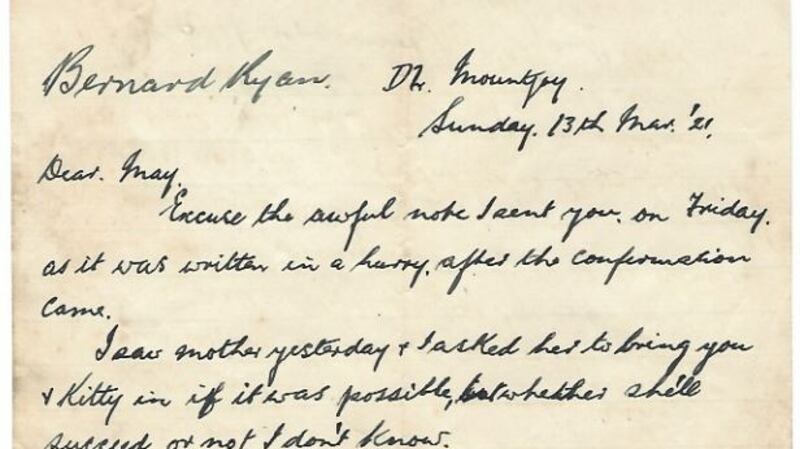 Bernard Ryan. D2. Mountjoy.
Sunday. 13th Mar. '21.
Dear. May.
Excuse the awful note I sent you, on Friday.
as it was written in a hurry, after the confirmation
came.
I saw mother yesterday & I asked her to bring you
& Kitty in if it was possible, but whether she'll
succeed or not I don't know.